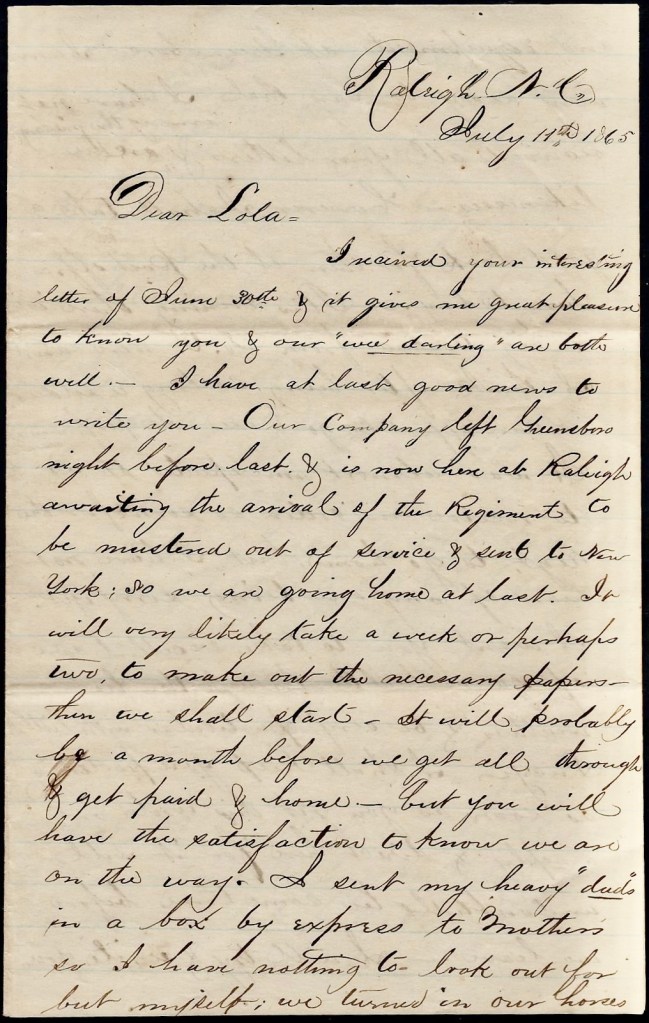 Raleigh N. C.
July 11th 1865
Dear Lola =
I recieved your interesting
letter of June 30th & it gives me great pleasure
to know you & our "wee darling" are both
well. — I have at last good news to
write you — Our Company left Greensboro
night before last. & is now here at Raleigh
awaiting the arrival of the Regiment to
be mustered out of service & sent to New
York; so we are going home at last. It
will very likely take a week or perhaps
two, to make out the necessary papers —
then we shall start — It will probably
be a month before we get all through
& get paid & home — but you will
have the satisfaction to know we are
on the way. I sent my heavy "duds"
in a box by express to Mothers
so I have nothing to look out for
but myself; we turned in our horses